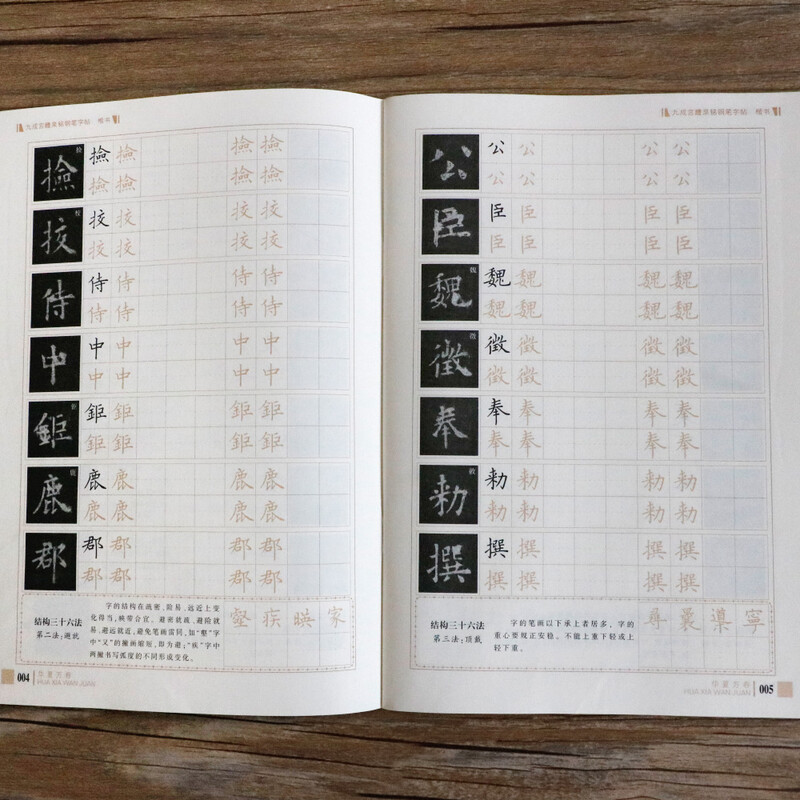 九成宫醴泉铭钢笔字帖 楷书
撿 撿 撿 撿 撿 撿
撿 撿 撿 撿
挍 挍 挍 挍 挍
挍 挍 挍 挍
侍 侍 侍 侍 侍
侍 侍 侍 侍
中 中 中 中 中
中 中 中 中
鉅 鉅 鉅 鉅 鉅
鉅 鉅 鉅 鉅
鹿 鹿 鹿 鹿 鹿
鹿 鹿 鹿 鹿
郡 郡 郡 郡 郡
郡 郡 郡 郡
结构三十六法
第二法:避就
字的结构在疏密、险易、远近上变
化得当,映带合宜。避密就疏、避险就
易、避远就近,避免笔画雷同。如“壑”字
中“又”的撇画缩短,即为避;“疾”字中
两撇书写弧度的不同形成变化。
壑 疾 暎 家
004
华夏万卷
HUA XIA WAN JUAN
九成宫醴泉铭钢笔字帖 楷书
公 公 公 公 公
公 公 公 公
臣 臣 臣 臣 臣
臣 臣 臣 臣
魏 魏 魏 魏 魏
魏 魏 魏 魏
徵 徵 徵 徵 徵
徵 徵 徵 徵
奉 奉 奉 奉 奉
奉 奉 奉 奉
勑 勑 勑 勑 勑
勑 勑 勑 勑
撰 撰 撰 撰 撰
撰 撰 撰 撰
结构三十六法
第三法:顶戴
字的笔画以下承上者居多,字的
重心要规正安稳。不能上重下轻或上
轻下重。
尋 導 寧
华夏万卷
HUA XIA WAN JUAN
005